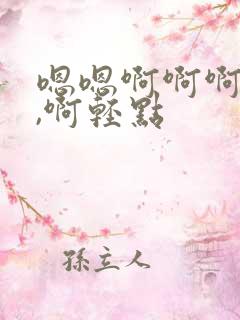 嗯嗯啊啊啊
,啊輕點
孫立人